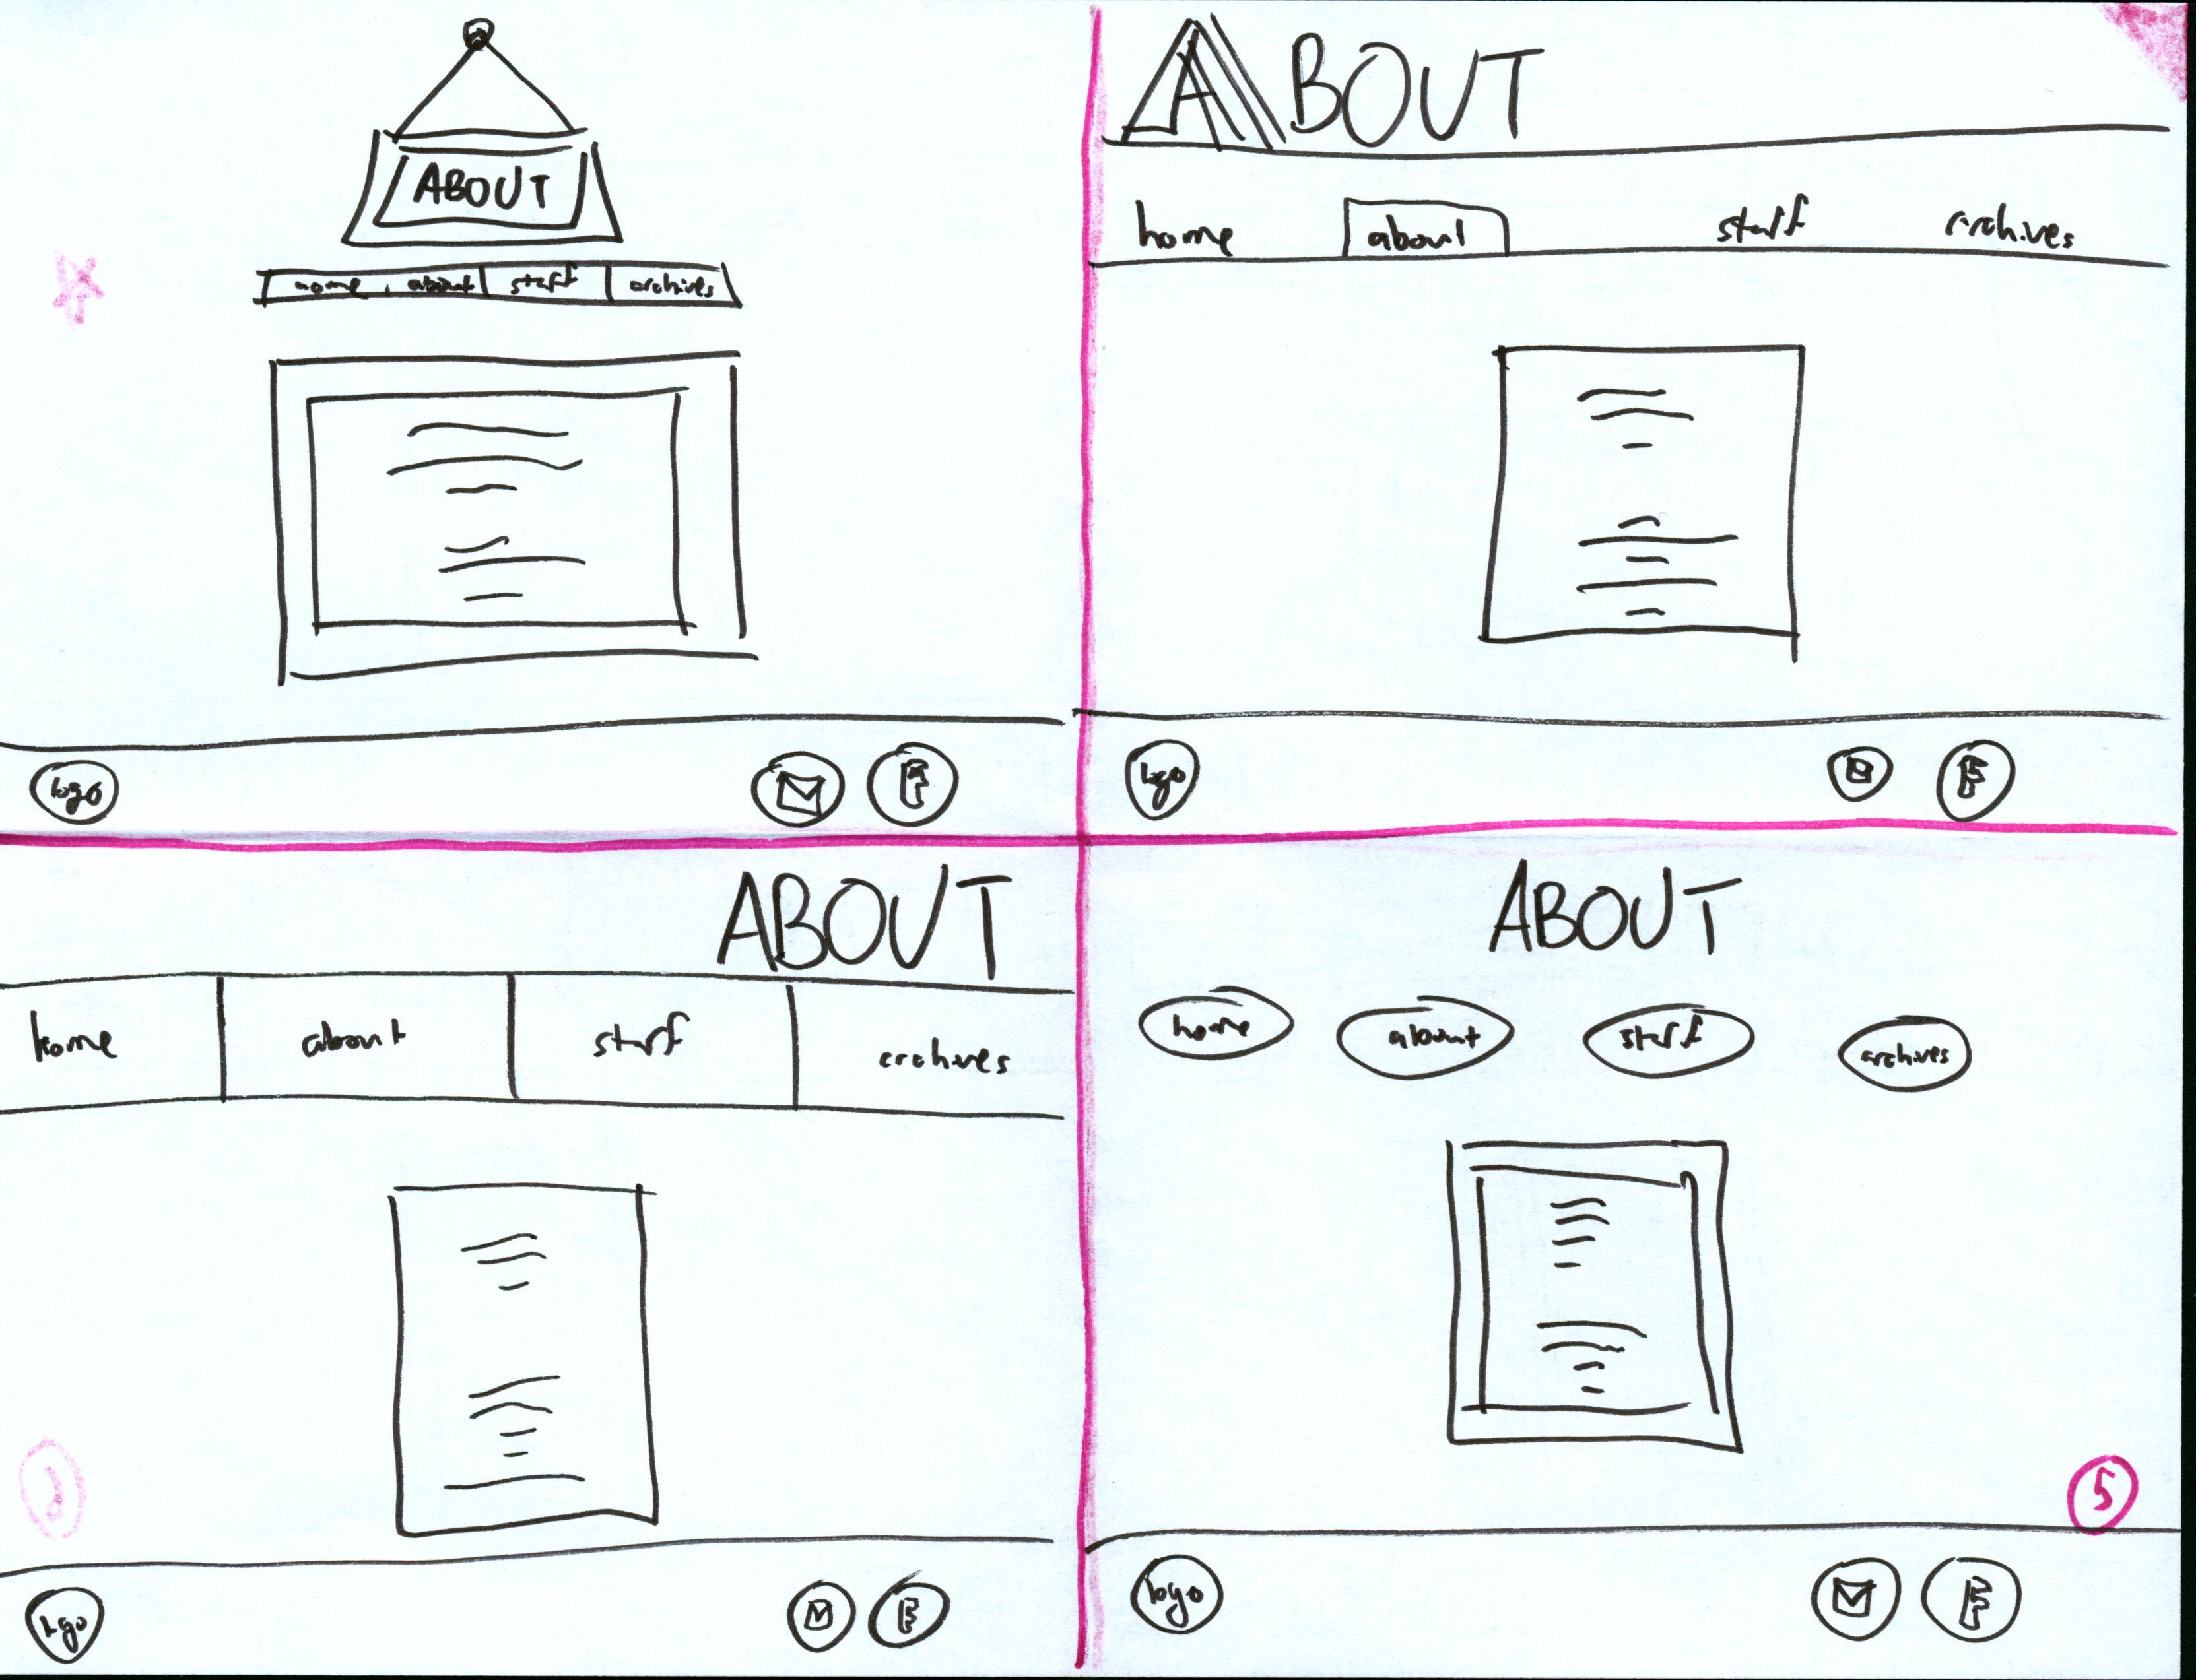 ABOUT
home about staff archives
logo F
ABOUT
home about staff archives
logo F
ABOUT
home about staff archives
logo F
ABOUT
home about staff archives
5
logo F